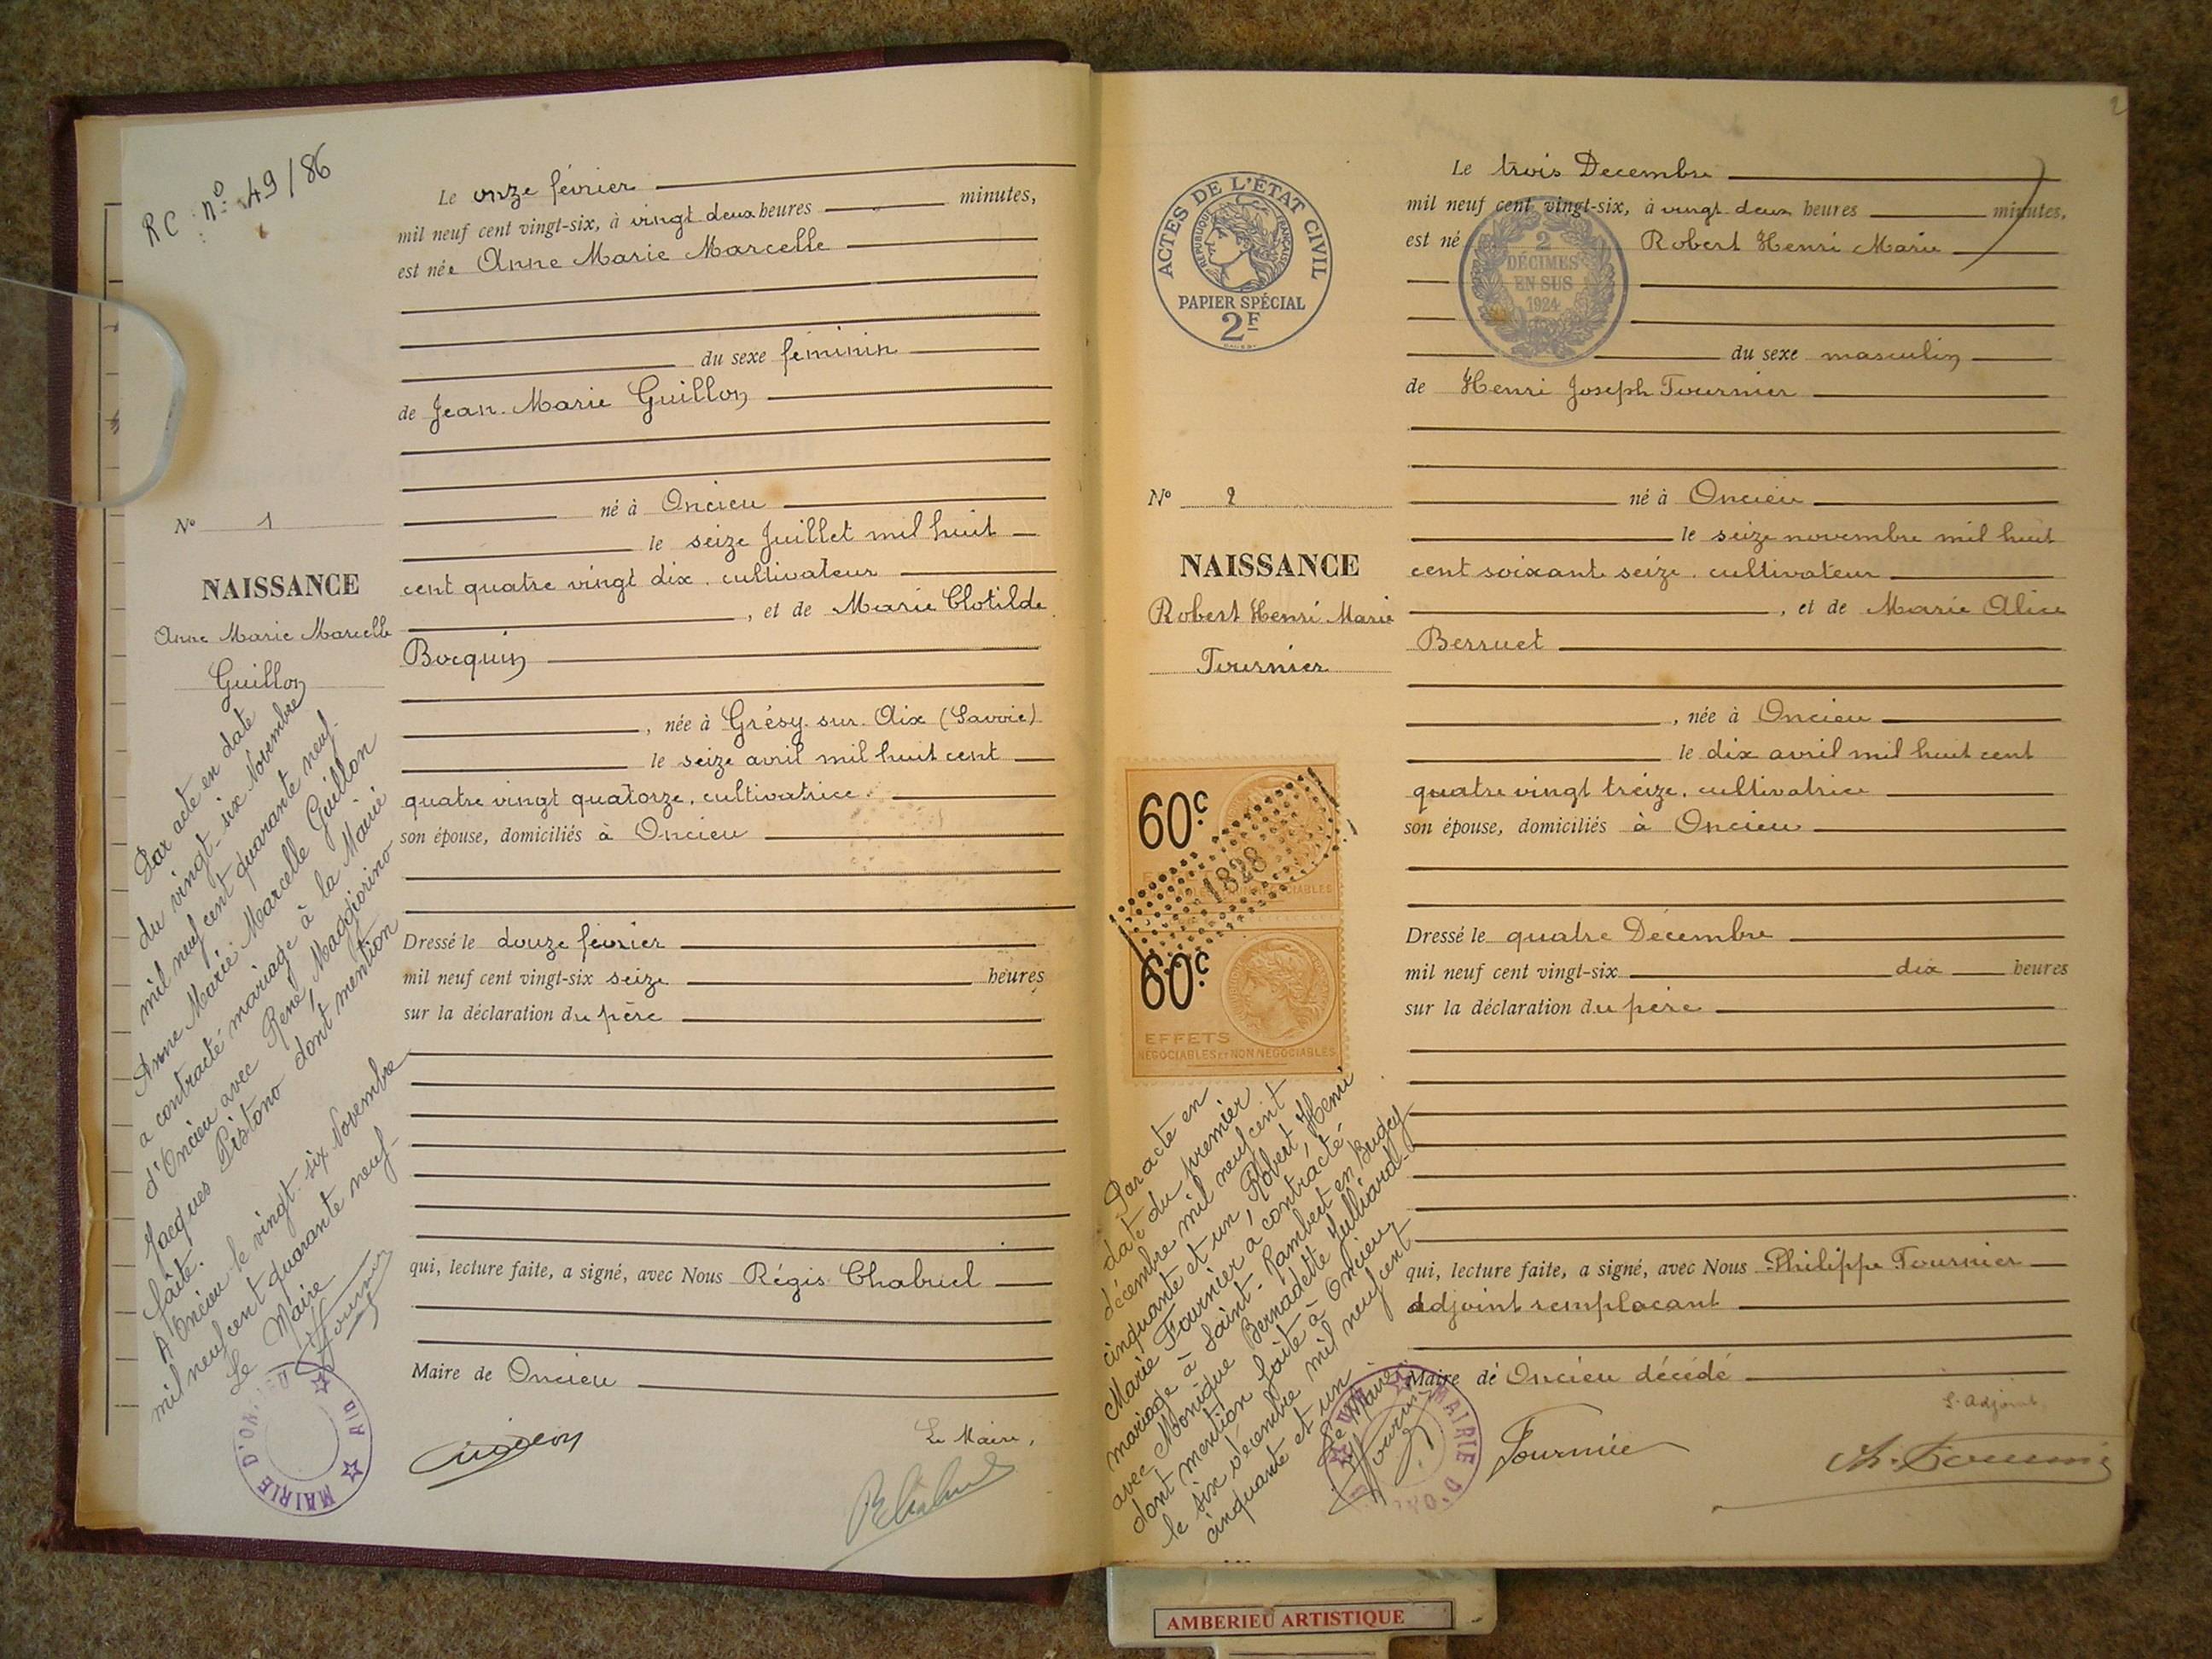 RC nº 49/86
Le onze février
mil neuf cent vingt-six, à vingt deux heures minutes,
est née Anne Marie Marcelle
du sexe féminin
de Jean-Marie Guillon
né à Oncieu
le seize Juillet mil huit
cent quatre vingt dix. cultivateur
, et de Marie Clotilde
Bocquin
, née à Grésy-sur-Aix (Savoie)
le seize avril mil huit cent
quatre vingt quatorze, cultivatrice
son épouse, domiciliés à Oncieu
Dressé le douze février
mil neuf cent vingt-six seize heures
sur la déclaration du père
qui, lecture faite, a signé, avec Nous Régis Chabuel
Maire de Oncieu
Le Maire,
No 1
NAISSANCE
Anne Marie Marcelle
Guillon
Par acte en date
du vingt-six Novembre
mil neuf cent quarante neuf-
Anne Marie Marcelle Guillon
a contracté mariage à la Mairie
d'Oncieu avec René, Maggiorino
Jacques Pistono dont mention
faite.
A Oncieu le vingt-six Novembre
mil neuf cent quarante neuf-
Le Maire
MAIRIE D'ON AIN
2
ACTES DE L'ÉTAT CIVIL
RÉPUBLIQUE FRANÇAISE
PAPIER SPÉCIAL
2F
2
DÉCIMES
EN SUS
1924
Le trois Decembre
mil neuf cent vingt-six, à vingt deux heures minutes,
est né Robert Henri Marie
du sexe masculin
de Henri Joseph Tournier
né à Oncieu
le seize novembre mil huit
cent soixante seize. cultivateur
, et de Marie Alice
Berruet
, née à Oncieu
le dix avril mil huit cent
quatre vingt treize, cultivatrice
son épouse, domiciliés à Oncieu
Dressé le quatre Décembre
mil neuf cent vingt-six dix heures
sur la déclaration du père
qui, lecture faite, a signé, avec Nous Philippe Tournier
adjoint remplacant
Maire de Oncieu décédé
L'adjoint
Tournier
Ph. Tournier
No 2
NAISSANCE
Robert Henri Marie
Tournier
60c
1828
60c
EFFETS
NÉGOCIABLES ET NON NÉGOCIABLES
Par acte en
date du premier
décembre mil neuf cent
cinquante et un, Robert, Henri
Marie Tournier a contracté
mariage à Saint-Rambert en Bugey
avec Monique Bernadette Julliard-
dont mention faite à Oncieu
le six décembre mil neuf cent
cinquante et un
Le Maire
MAIRIE D'ON
AMBERIEU ARTISTIQUE